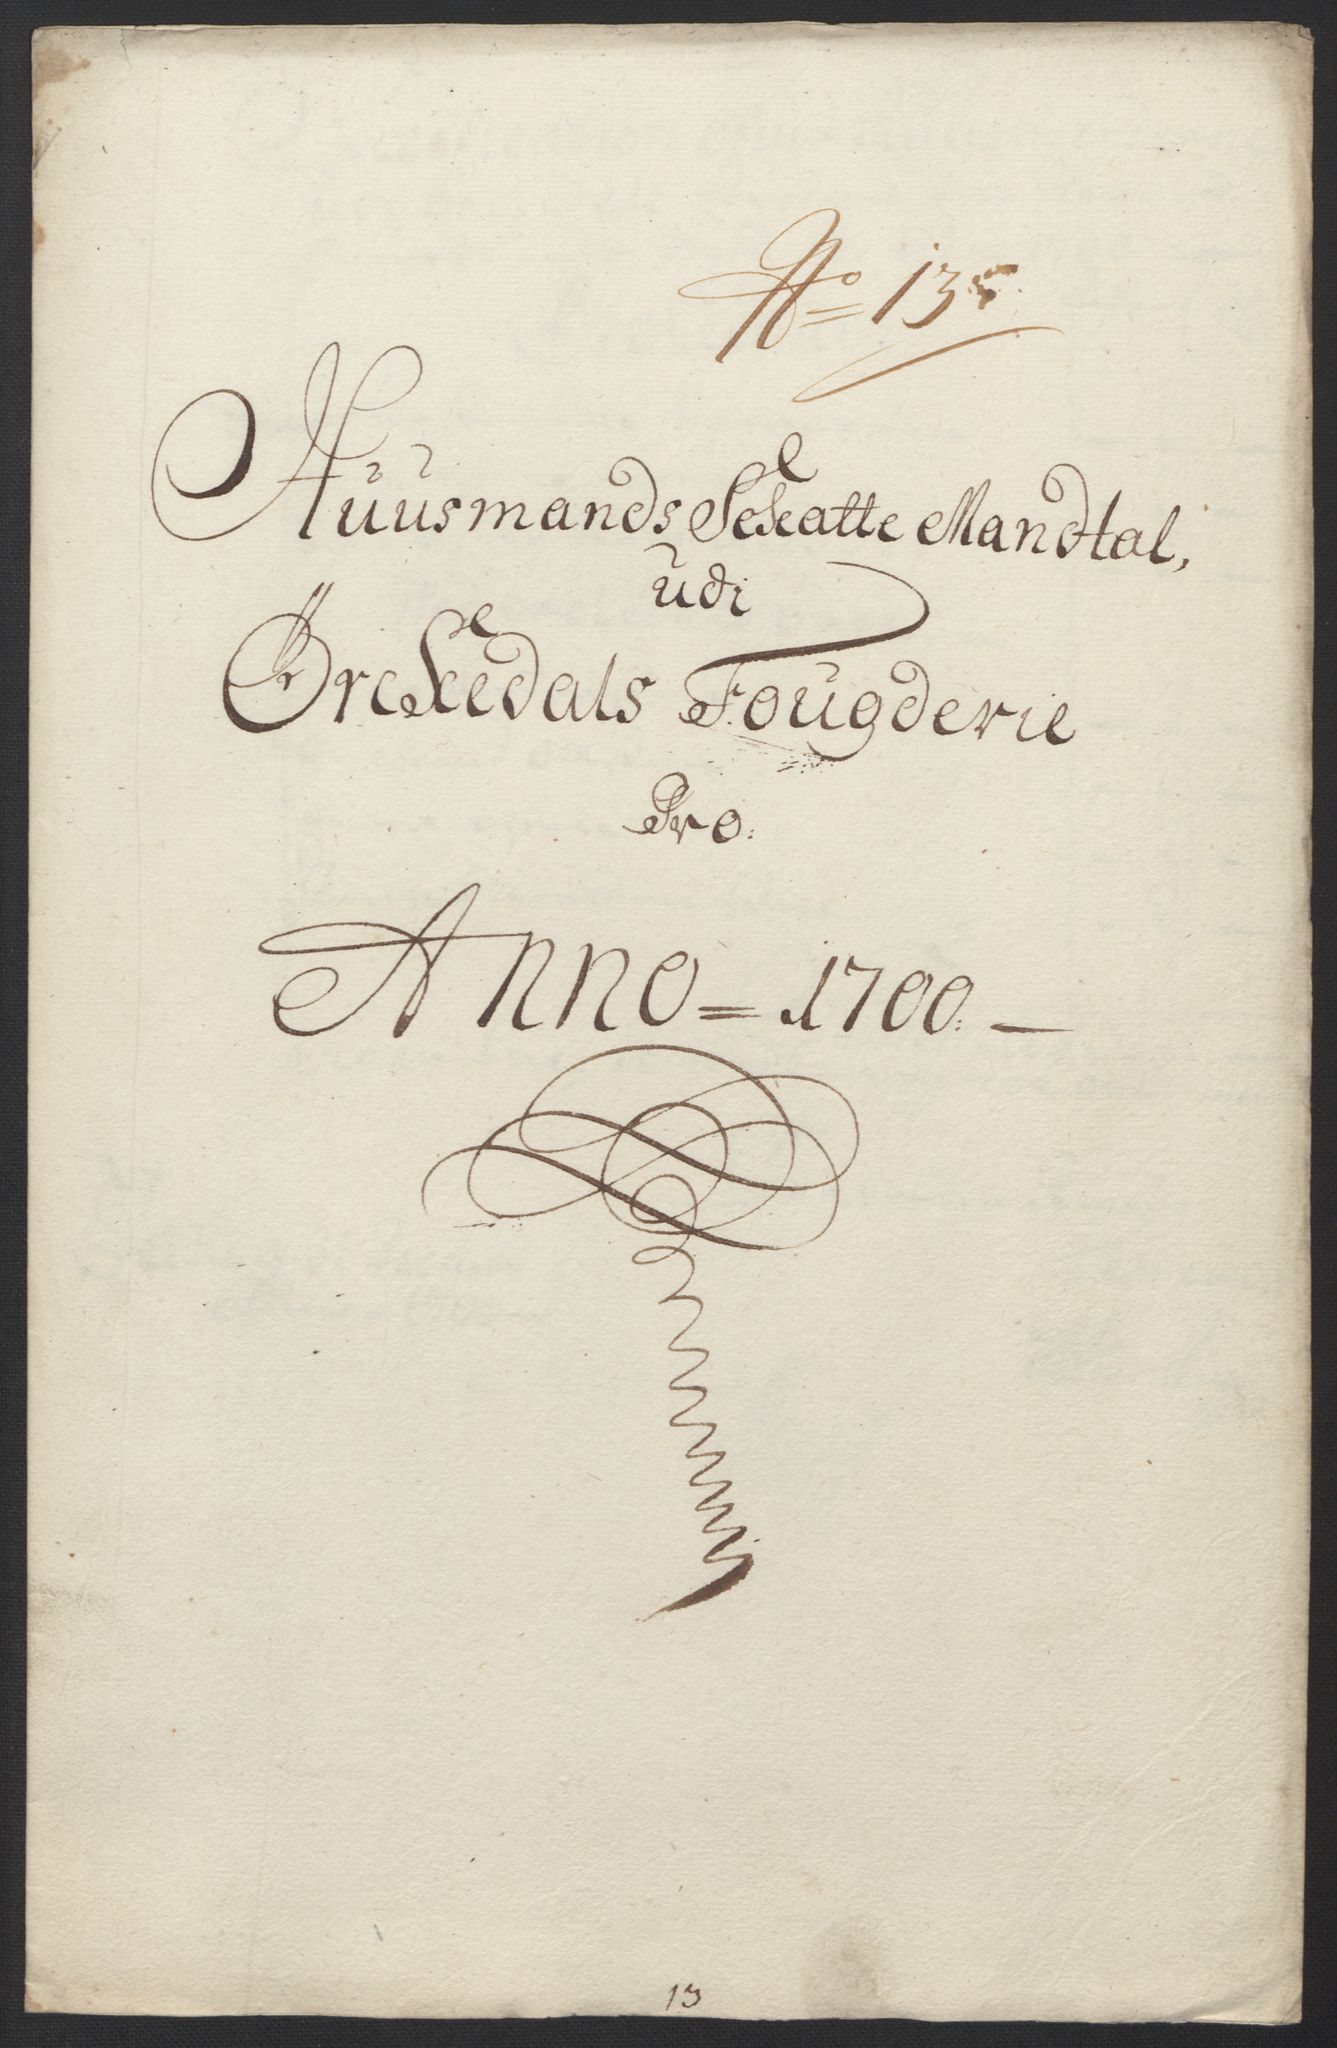 No 135
Huusmands Skatte Mandtal,
udi
Ørckedals Fougderie
Pro.
Anno = 1700. —
13